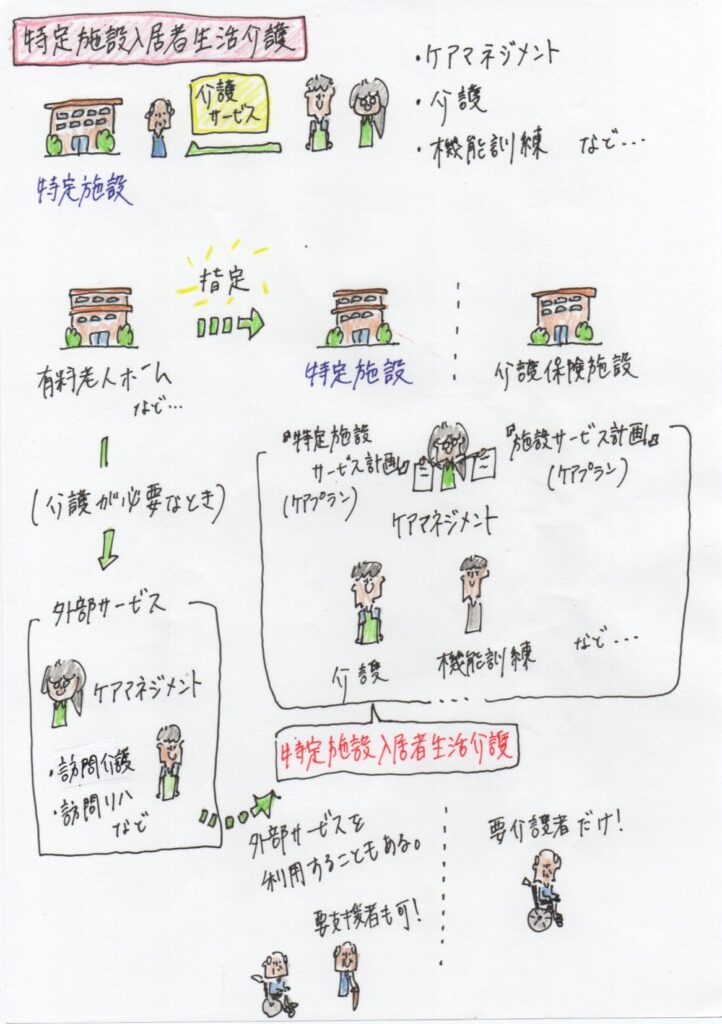 特定施設入居者生活介護
介護
サービス
・ケアマネジメント
・介護
・機能訓練 など…
特定施設
指定
有料老人ホーム
など…
特定施設
介護保険施設
(介護が必要なとき)
『特定施設
サービス計画』
(ケアプラン)
『施設サービス計画』
(ケアプラン)
ケアマネジメント
介護
機能訓練
など…
特定施設入居者生活介護
外部サービス
ケアマネジメント
・訪問介護
・訪問リハ
など
外部サービスを
利用することもある。
要支援者も可!
要介護者だけ!